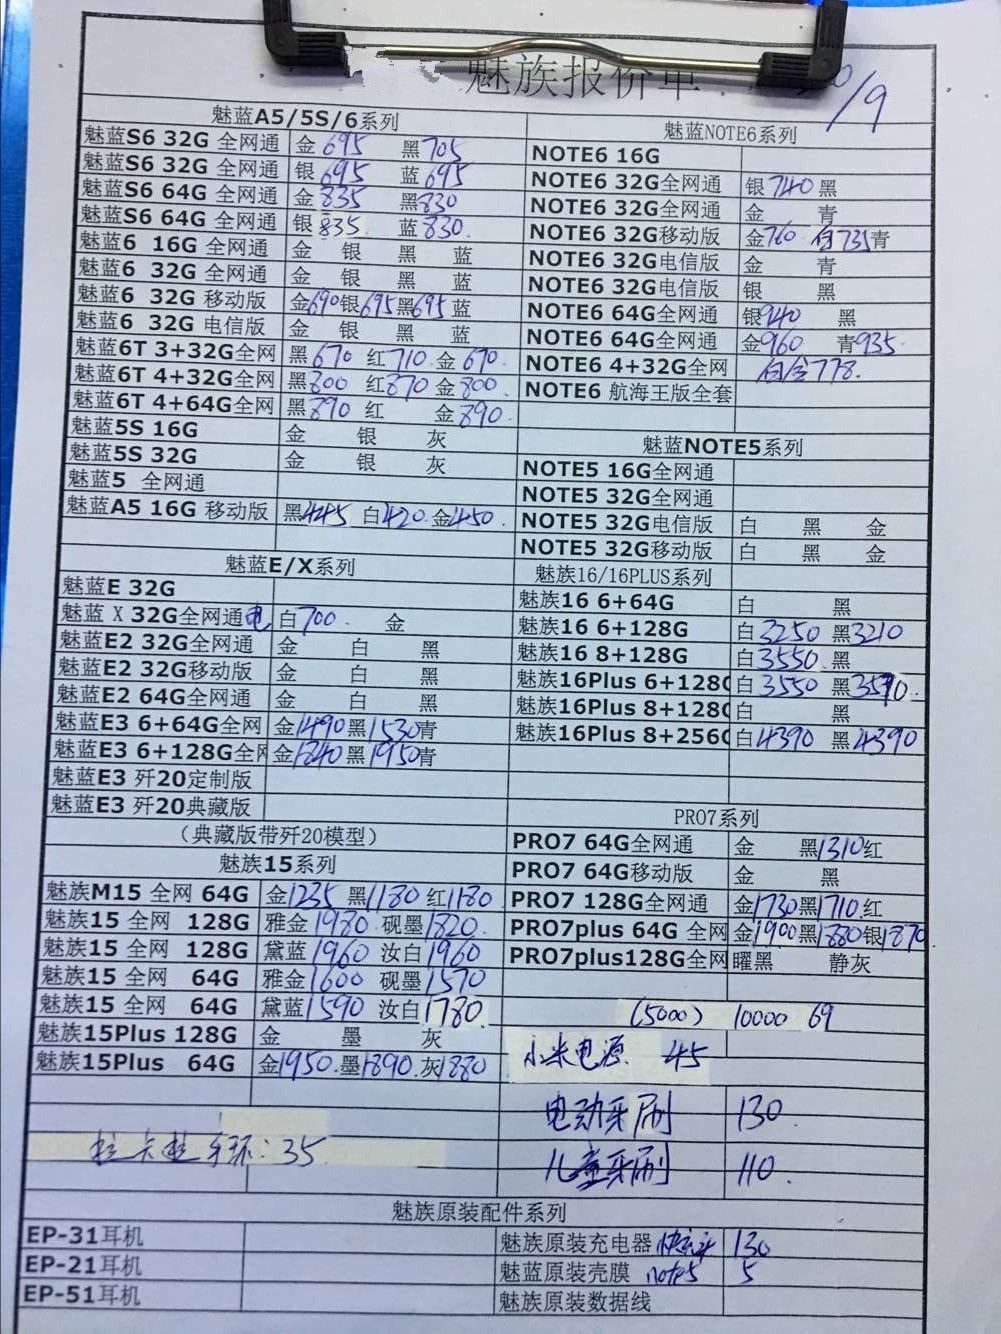 魅族报价单
/9
魅蓝A5/5S/6系列
魅蓝S6 32G 全网通 金695 黑705
魅蓝S6 32G 全网通 银695 蓝695
魅蓝S6 64G 全网通 金835 黑830
魅蓝S6 64G 全网通 银835. 蓝830.
魅蓝6 16G 全网通 金 银 黑 蓝
魅蓝6 32G 全网通 金 银 黑 蓝
魅蓝6 32G 移动版 金690银695黑695蓝
魅蓝6 32G 电信版 金 银 黑 蓝
魅蓝6T 3+32G全网 黑670 红710. 金670.
魅蓝6T 4+32G全网 黑800 红870 金800
魅蓝6T 4+64G全网 黑890 红 金890.
魅蓝5S 16G 金 银 灰
魅蓝5S 32G 金 银 灰
魅蓝5 全网通
魅蓝A5 16G 移动版 黑445 白420.金450.
魅蓝E/X系列
魅蓝E 32G
魅蓝 X 32G全网通电 白700. 金
魅蓝E2 32G全网通 金 白 黑
魅蓝E2 32G移动版 金 白 黑
魅蓝E2 64G全网通 金 白 黑
魅蓝E3 6+64G全网 金1490黑1530青
魅蓝E3 6+128G全网 金1840黑1950青
魅蓝E3 歼20定制版
魅蓝E3 歼20典藏版
（典藏版带歼20模型）
魅族15系列
魅族M15 全网 64G 金1235 黑1180 红1180
魅族15 全网 128G 雅金1980. 砚墨1820.
魅族15 全网 128G 黛蓝1960 汝白1960
魅族15 全网 64G 雅金1600 砚墨1570
魅族15 全网 64G 黛蓝1590 汝白1780.
魅族15Plus 128G 金 墨 灰
魅族15Plus 64G 金1950.墨1890.灰1880
拉卡拉手环：35
魅蓝NOTE6系列
NOTE6 16G
NOTE6 32G全网通 银740黑
NOTE6 32G全网通 金 青
NOTE6 32G移动版 金760 白735青
NOTE6 32G电信版 金 青
NOTE6 32G电信版 银 黑
NOTE6 64G全网通 银940 黑
NOTE6 64G全网通 金960 青935.
NOTE6 4+32G全网 白/金778.
NOTE6 航海王版全套
魅蓝NOTE5系列
NOTE5 16G全网通
NOTE5 32G全网通
NOTE5 32G电信版 白 黑 金
NOTE5 32G移动版 白 黑 金
魅族16/16PLUS系列
魅族16 6+64G 白 黑
魅族16 6+128G 白3250 黑3210
魅族16 8+128G 白3550.黑
魅族16Plus 6+128G 白3550 黑3590.
魅族16Plus 8+128G 白 黑
魅族16Plus 8+256G 白4390 黑4390
PRO7系列
PRO7 64G全网通 金 黑1310红
PRO7 64G移动版 金 黑
PRO7 128G全网通 金1730黑1710.红
PRO7plus 64G 全网 金1900黑1880银1870
PRO7plus128G全网 曜黑 静灰
(5000) 10000 69
小米电源. 45
电动牙刷 130
儿童牙刷 110.
魅族原装配件系列
EP-31耳机 魅族原装充电器 130
EP-21耳机 魅蓝原装壳膜 note5 5
EP-51耳机 魅族原装数据线